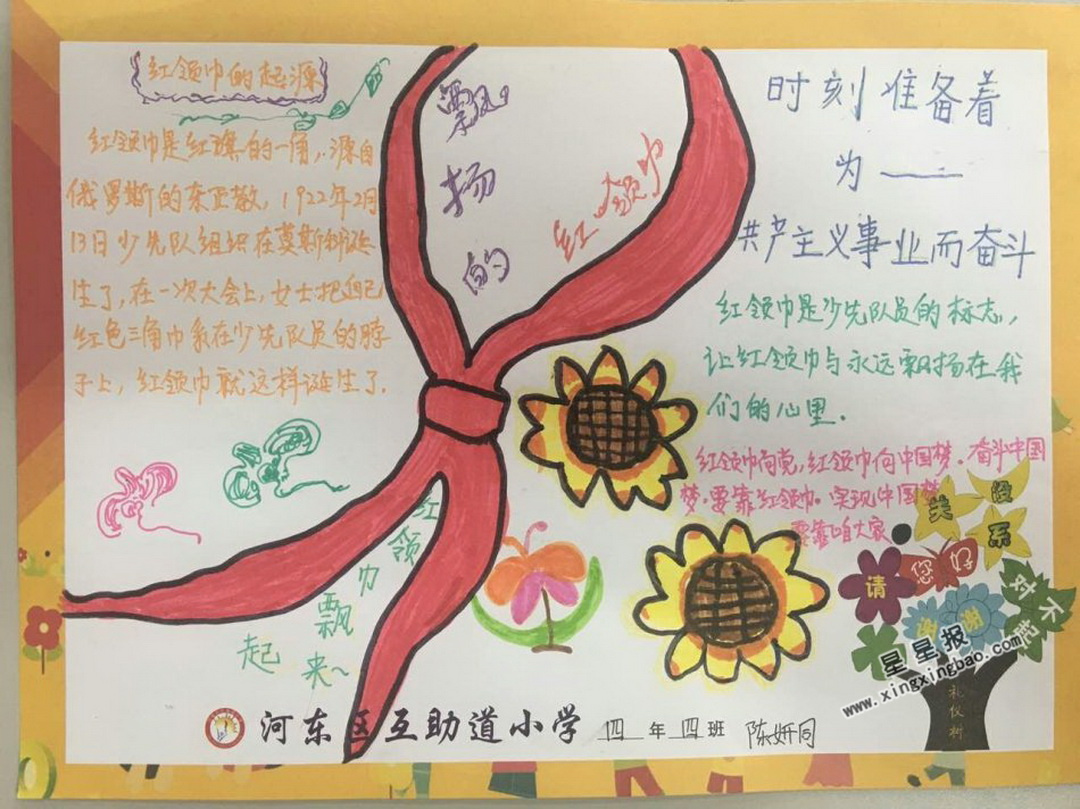 红领巾的起源
红领巾是红旗的一角,源自
俄罗斯的东正教,1922年2月
13日少先队组织在莫斯科诞
生了,在一次大会上,女士把自己
红色三角巾系在少先队员的脖
子上,红领巾就这样诞生了.
飘扬的
红领巾
时刻准备着
为——
共产主义事业而奋斗
红领巾是少先队员的标志,
让红领巾与永远飘扬在我
们的心里.
红领巾向党,红领巾向中国梦.奋斗中国
梦.要靠红领巾.实现中国梦
要靠咱大家.
红领巾飘
起来~
没
关
系
您好
请
对不起
谢谢
礼仪树
星星报
www.xingxingbao.com
河东区互助道小学 四年四班 陈妍同